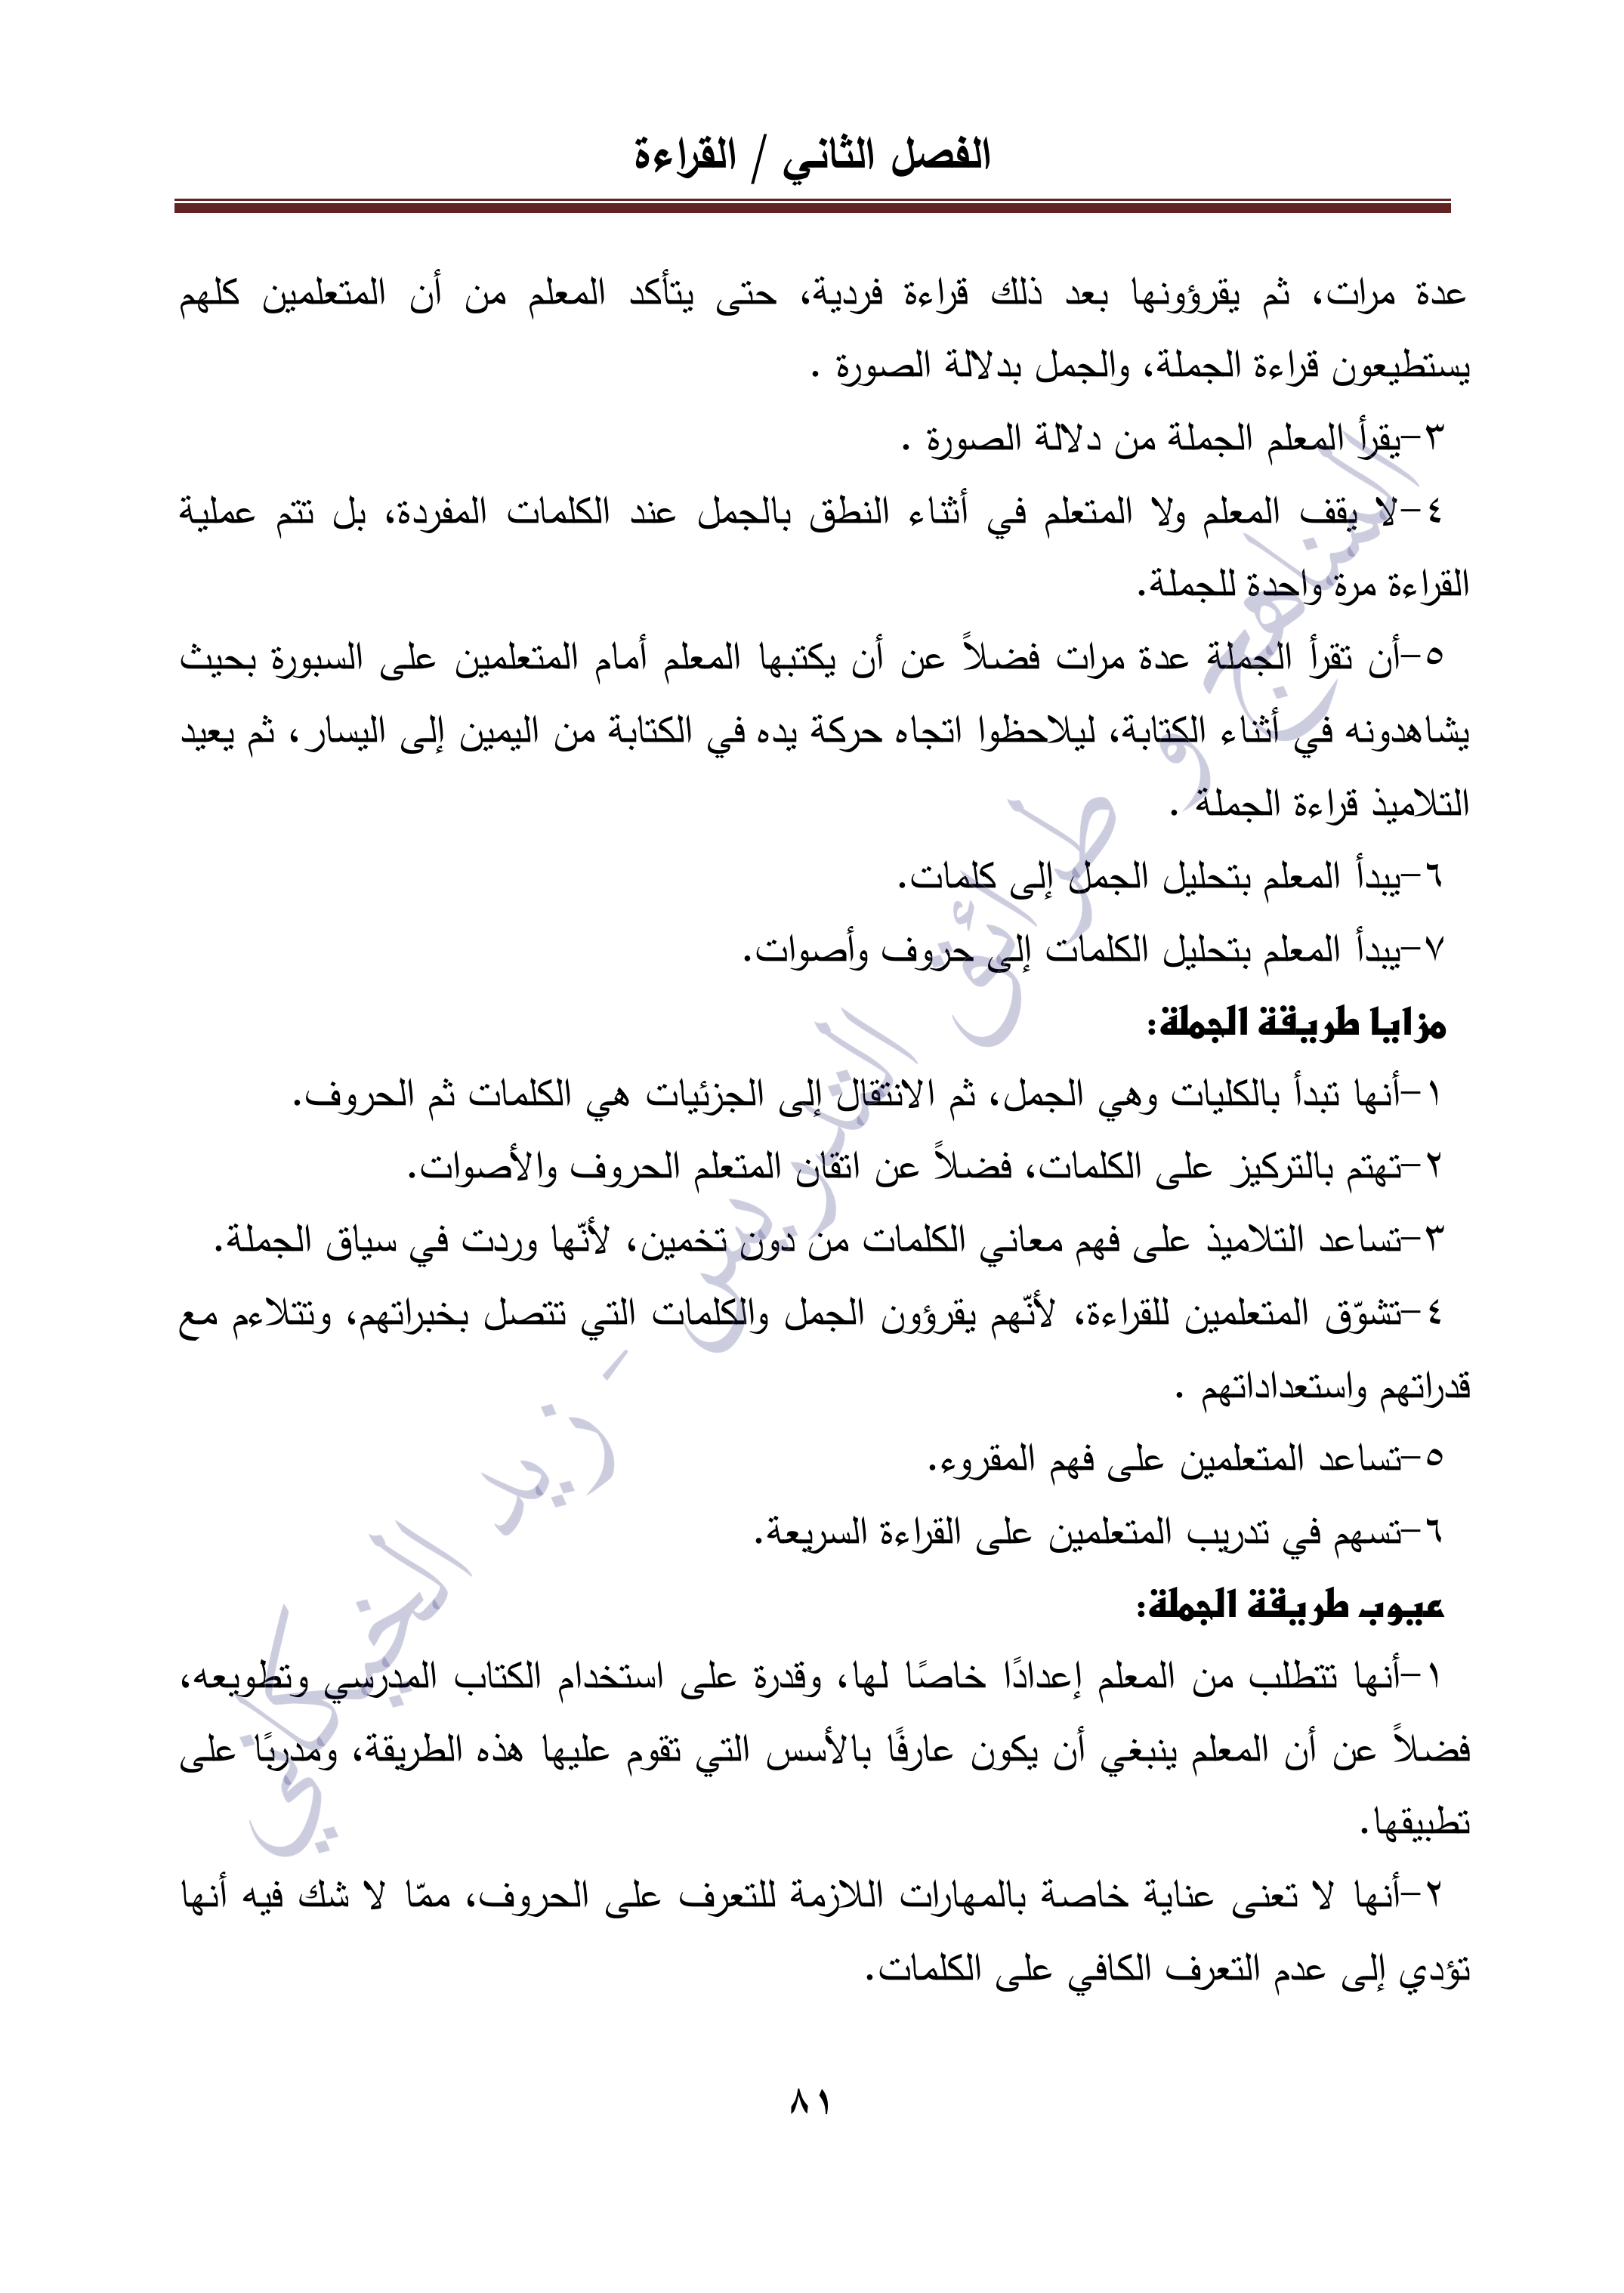 الفصل الثاني / القراءة
عدة مرات، ثم يقرؤونها بعد ذلك قراءة فردية، حتى يتأكد المعلم من أن المتعلمين كلهم
يستطيعون قراءة الجملة، والجمل بدلالة الصورة .
٣-يقرأ المعلم الجملة من دلالة الصورة .
٤-لا يقف المعلم ولا المتعلم في أثناء النطق بالجمل عند الكلمات المفردة، بل تتم عملية
القراءة مرة واحدة للجملة.
٥-أن تقرأ الجملة عدة مرات فضلاً عن أن يكتبها المعلم أمام المتعلمين على السبورة بحيث
يشاهدونه في أثناء الكتابة، ليلاحظوا اتجاه حركة يده في الكتابة من اليمين إلى اليسار، ثم يعيد
التلاميذ قراءة الجملة .
٦-يبدأ المعلم بتحليل الجمل إلى كلمات.
٧-يبدأ المعلم بتحليل الكلمات إلى حروف وأصوات.
مزايا طريقة الجملة:
١-أنها تبدأ بالكليات وهي الجمل، ثم الانتقال إلى الجزئيات هي الكلمات ثم الحروف.
٢-تهتم بالتركيز على الكلمات، فضلاً عن اتقان المتعلم الحروف والأصوات.
٣-تساعد التلاميذ على فهم معاني الكلمات من دون تخمين، لأنّها وردت في سياق الجملة.
٤-تشوّق المتعلمين للقراءة، لأنّهم يقرؤون الجمل والكلمات التي تتصل بخبراتهم، وتتلاءم مع
قدراتهم واستعداداتهم .
٥-تساعد المتعلمين على فهم المقروء.
٦-تسهم في تدريب المتعلمين على القراءة السريعة.
عيوب طريقة الجملة:
١-أنها تتطلب من المعلم إعدادًا خاصًا لها، وقدرة على استخدام الكتاب المدرسي وتطويعه،
فضلاً عن أن المعلم ينبغي أن يكون عارفًا بالأسس التي تقوم عليها هذه الطريقة، ومدربًا على
تطبيقها.
٢-أنها لا تعنى عناية خاصة بالمهارات اللازمة للتعرف على الحروف، ممّا لا شك فيه أنها
تؤدي إلى عدم التعرف الكافي على الكلمات.
٨١
المناهج و طرائق التدريس - زيد الخيكاني